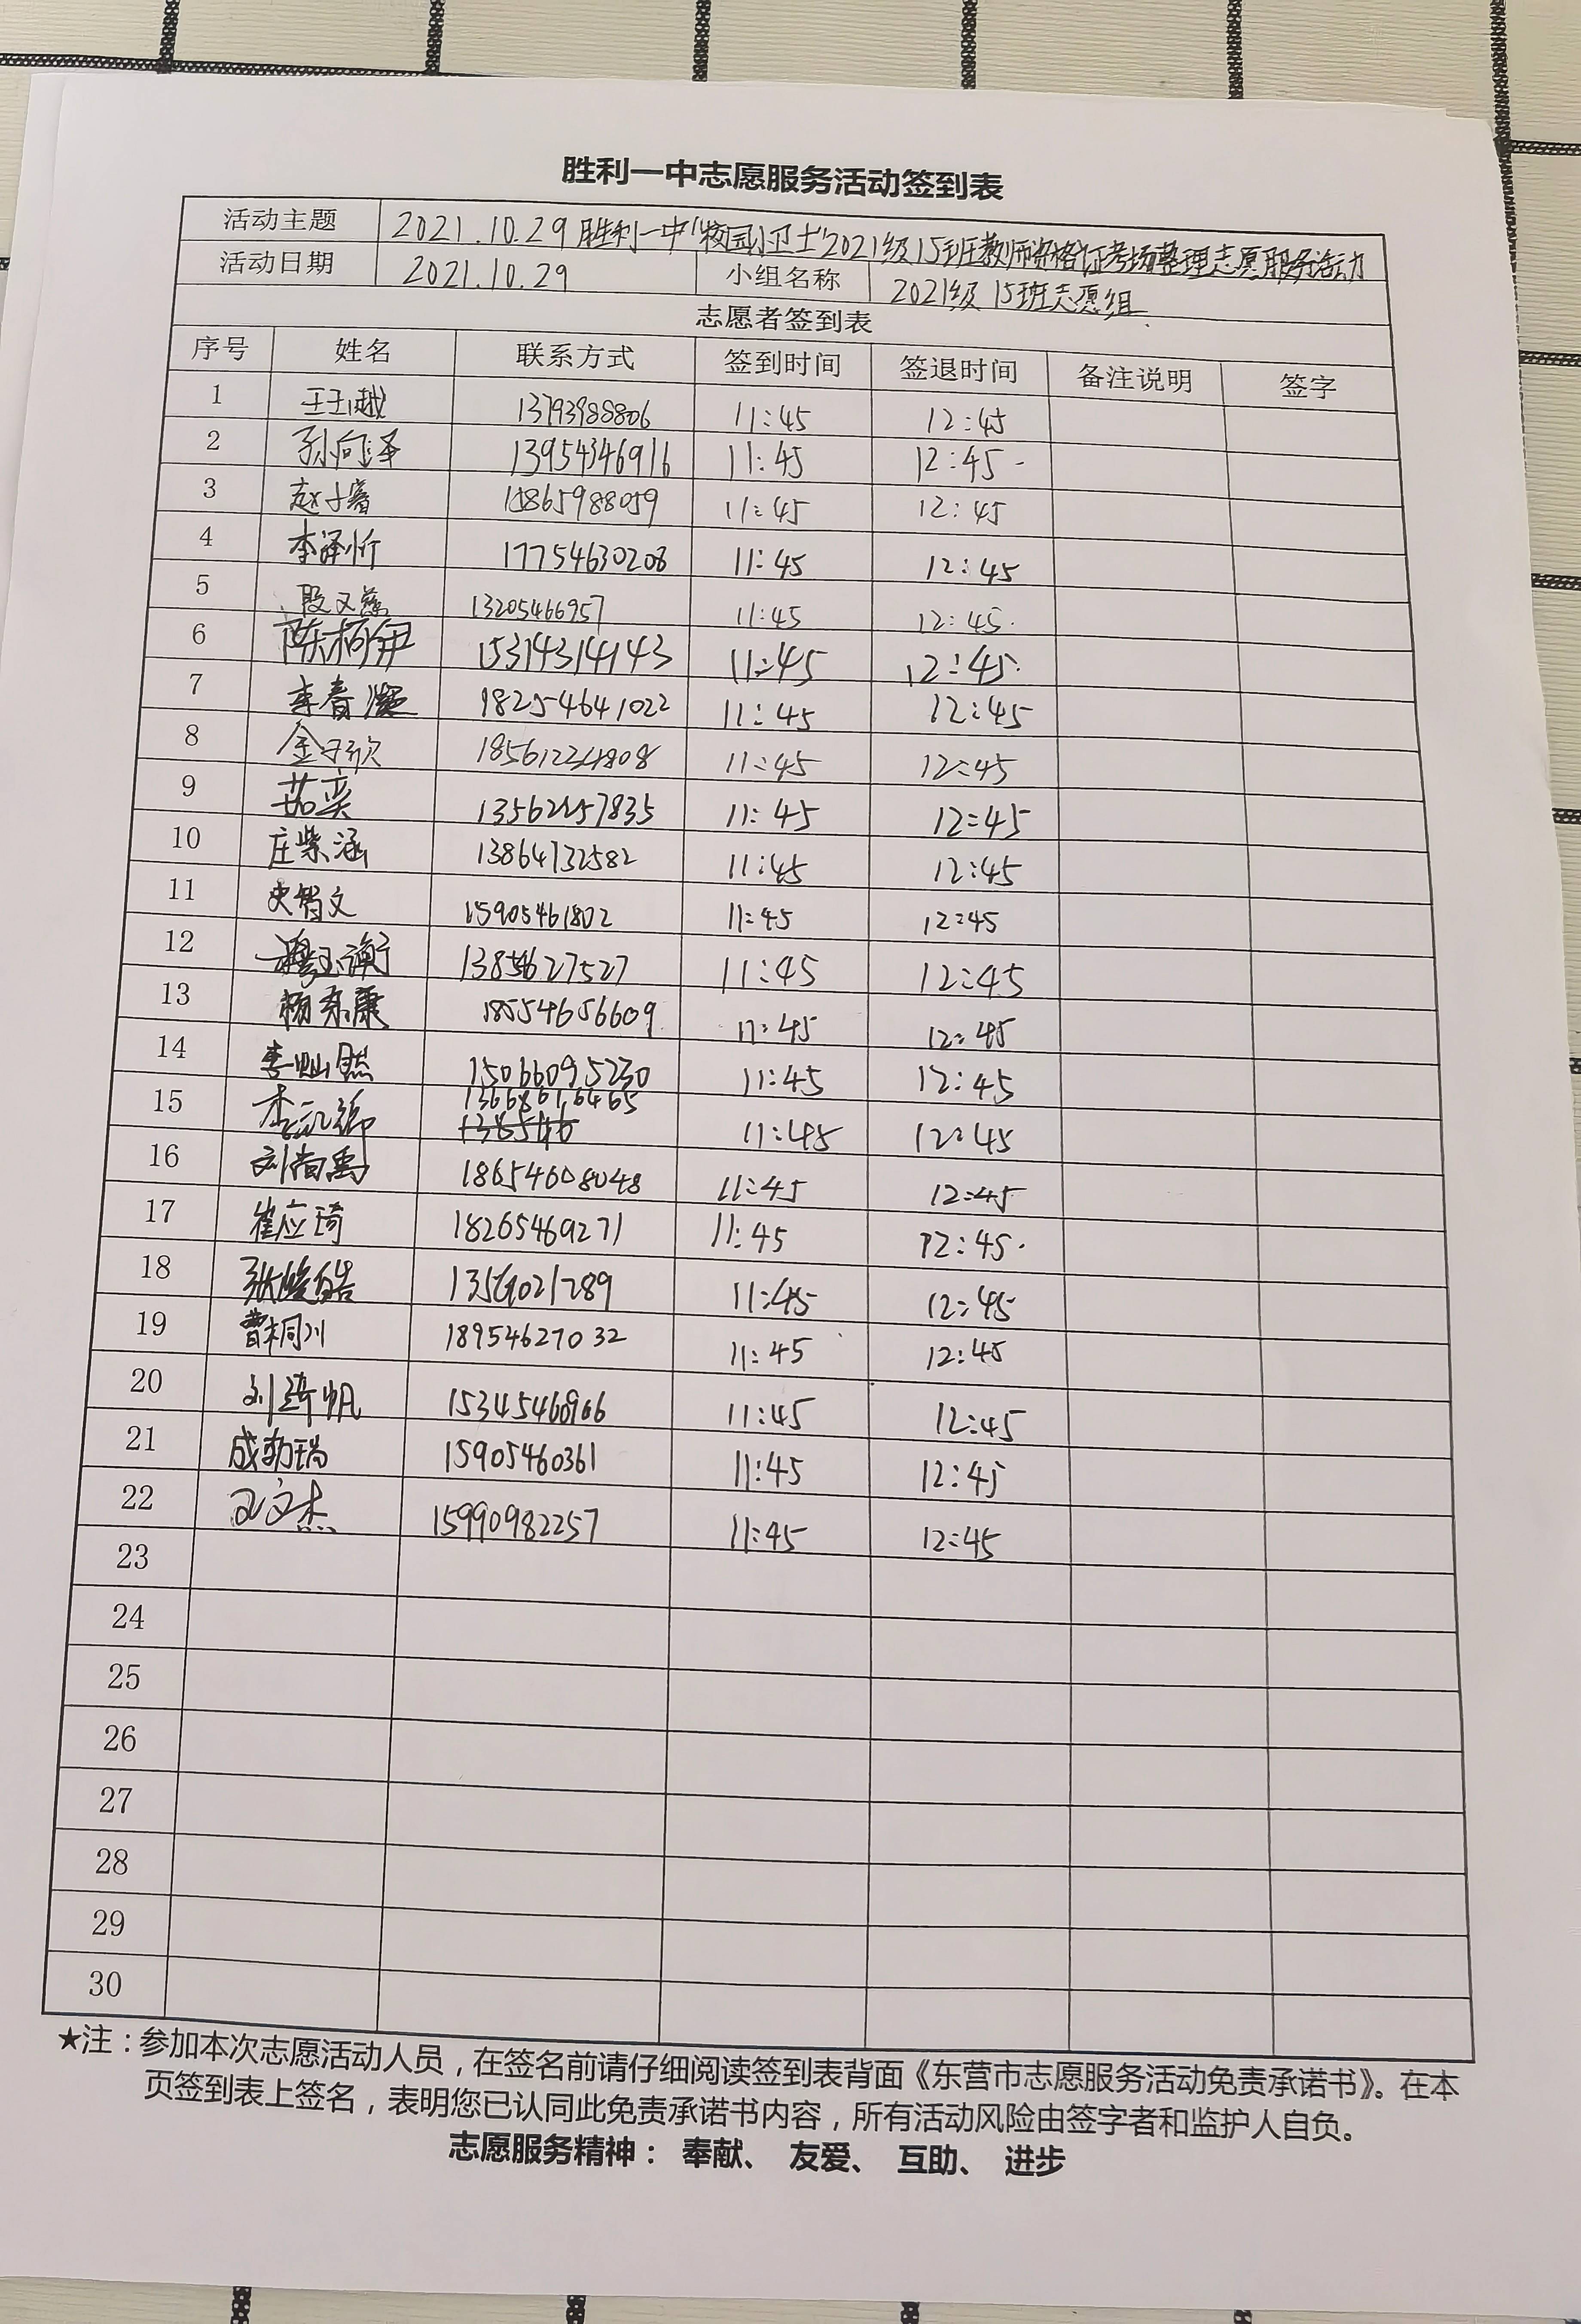 胜利一中志愿服务活动签到表
活动主题 2021.10.29胜利一中“校园小卫士”2021级15班教师资格证考场整理志愿服务活动
活动日期 2021.10.29 小组名称 2021级15班志愿组
志愿者签到表
序号 姓名 联系方式 签到时间 签退时间 备注说明 签字
1 王玉越 13793988806 11:45 12:45
2 孙向泽 13954346916 11:45 12:45
3 赵子睿 15865988059 11:45 12:45
4 李泽忻 17754630208 11:45 12:45
5 殷文慈 13205466957 11:45 12:45
6 陈柏伊 15314314143 11:45 12:45
7 李春漫 18254641022 11:45 12:45
8 金子欣 18561234808 11:45 12:45
9 茹奕 13562257835 11:45 12:45
10 庄紫涵 13864732582 11:45 12:45
11 史智文 15905461802 11:45 12:45
12 11:45 12:45
13 18554656609 11:45 12:45
14 李灿然 15066095230 11:45 12:45
15 13668616465 11:45 12:45
16 刘尚禹 18654608048 11:45 12:45
17 崔应琦 18265469271 11:45 12:45
18 张峻皓 11:45 12:45
19 曹桐川 18954627032 11:45 12:45
20 15345460966 11:45 12:45
21 成勃瑞 15905460361 11:45 12:45
22 王文杰 15990982257 11:45 12:45
23
24
25
26
27
28
29
30
★注：参加本次志愿活动人员，在签名前请仔细阅读签到表背面《东营市志愿服务活动免责承诺书》。在本
页签到表上签名，表明您已认同此免责承诺书内容，所有活动风险由签字者和监护人自负。
志愿服务精神： 奉献、 友爱、 互助、 进步